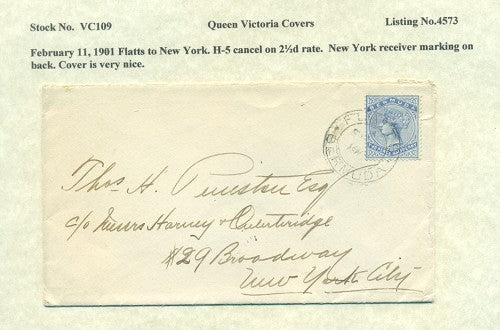 Stock No. VC109 Queen Victoria Covers Listing No.4573
February 11, 1901 Flatts to New York. H-5 cancel on 2½d rate. New York receiver marking on
back. Cover is very nice.
BERMUDA
BERMUDA
Thos H. Esq
c/o Messrs Harvey & Outerbridge
#29 Broadway
New York City